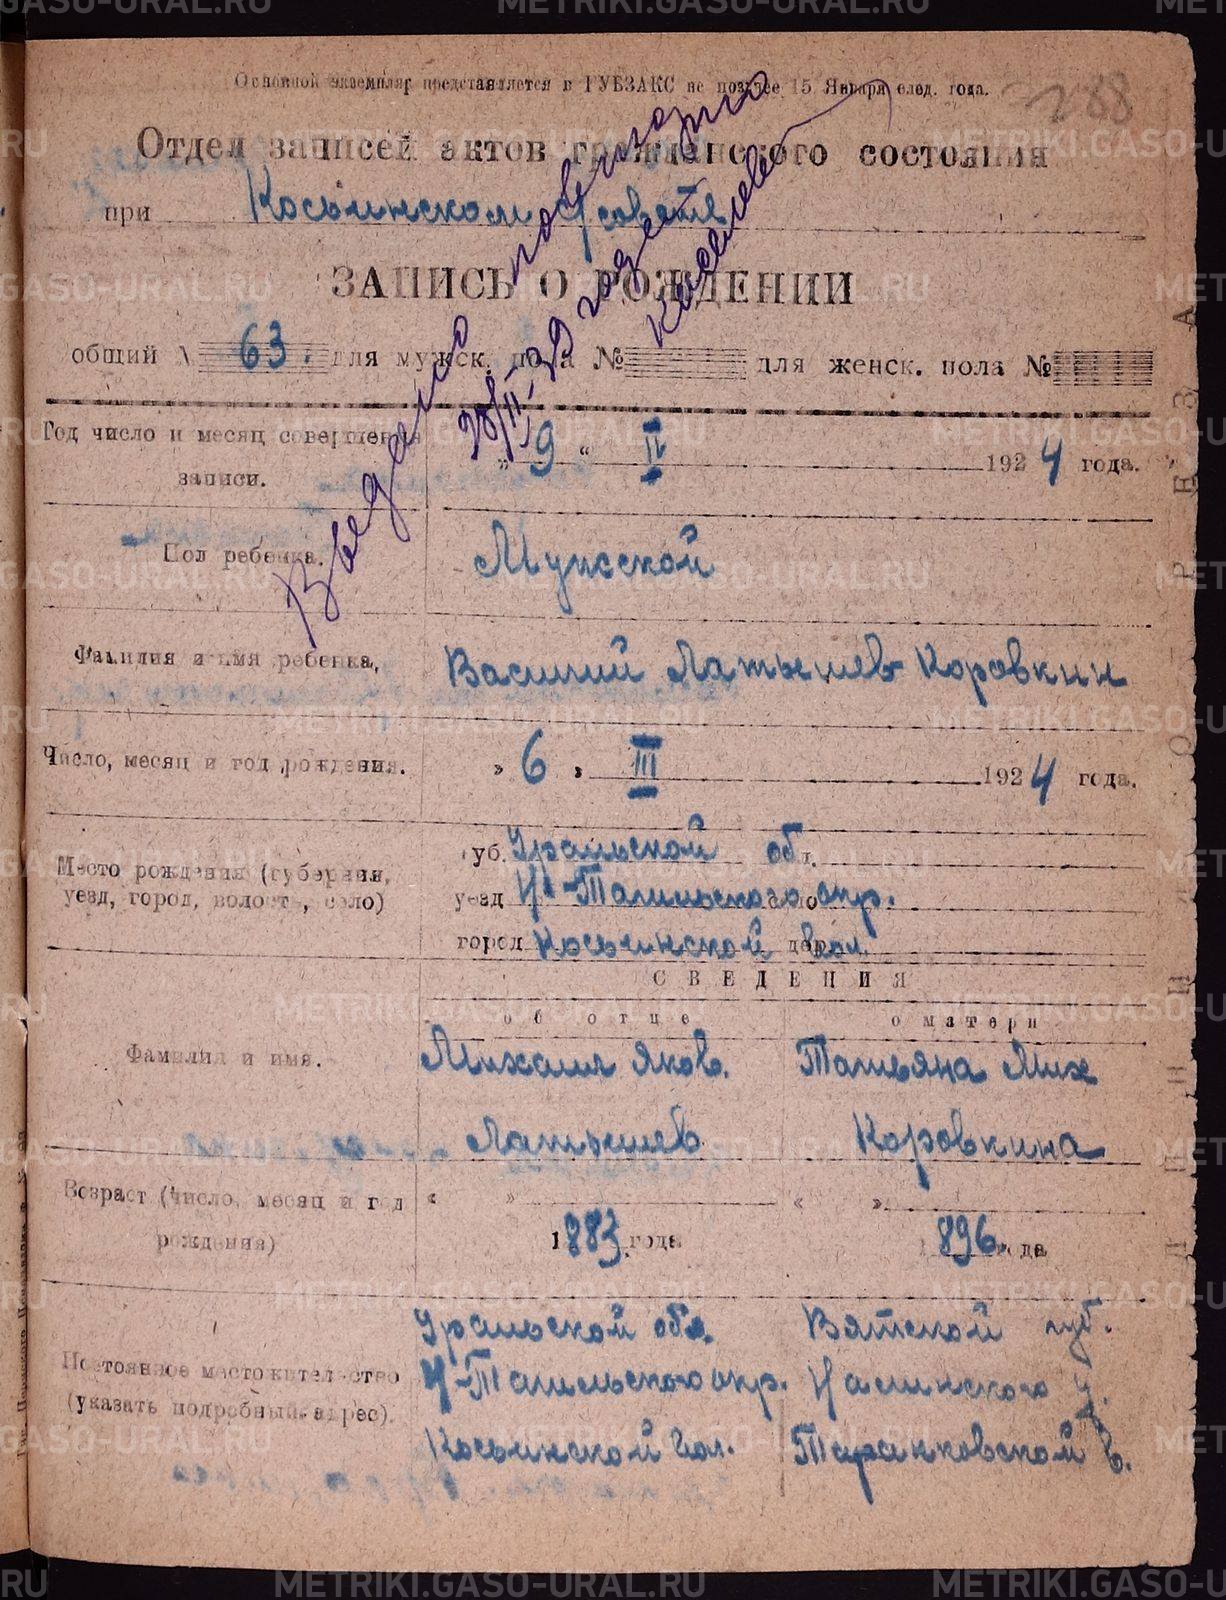 Основной экземпляр представляется в ГУБЗАКС не позднее 15 Января след. года.
288
Отдел записей актов гражданского состояния
при Косьинском
ЗАПИСЬ О РОЖДЕНИИ
общий № 63 для мужск. пола № для женск. пола №
Выдано повторно
28/II-39 года
Год число и месяц совершения записи.
" 9 " IV 1924 года.
Пол ребенка. Мужской
Фамилия и имя ребенка, Василий Латышев Коровкин
Число, месяц и год рождения. " 6 " III 1924 года.
Место рождения (губерния, уезд, город, волость, село)
губ. Уральской обл.
уезд Н-Тагильского окр.
город Косьинской вол.
СВЕДЕНИЯ
об отце о матери
Фамилия и имя. Михаил Яков. Татьяна Мих
Латышев Коровкина
Возраст (число, месяц и год рождения)
1883 года 1896 года
Постоянное местожительство (указать подробный адрес).
Уральской обл. Вятской губ.
Н-Тагильского окр. У.
Косьинской вол. в.
ЛИНИЯ ОТРЕЗА
METRIKI.GASO-URAL.RU